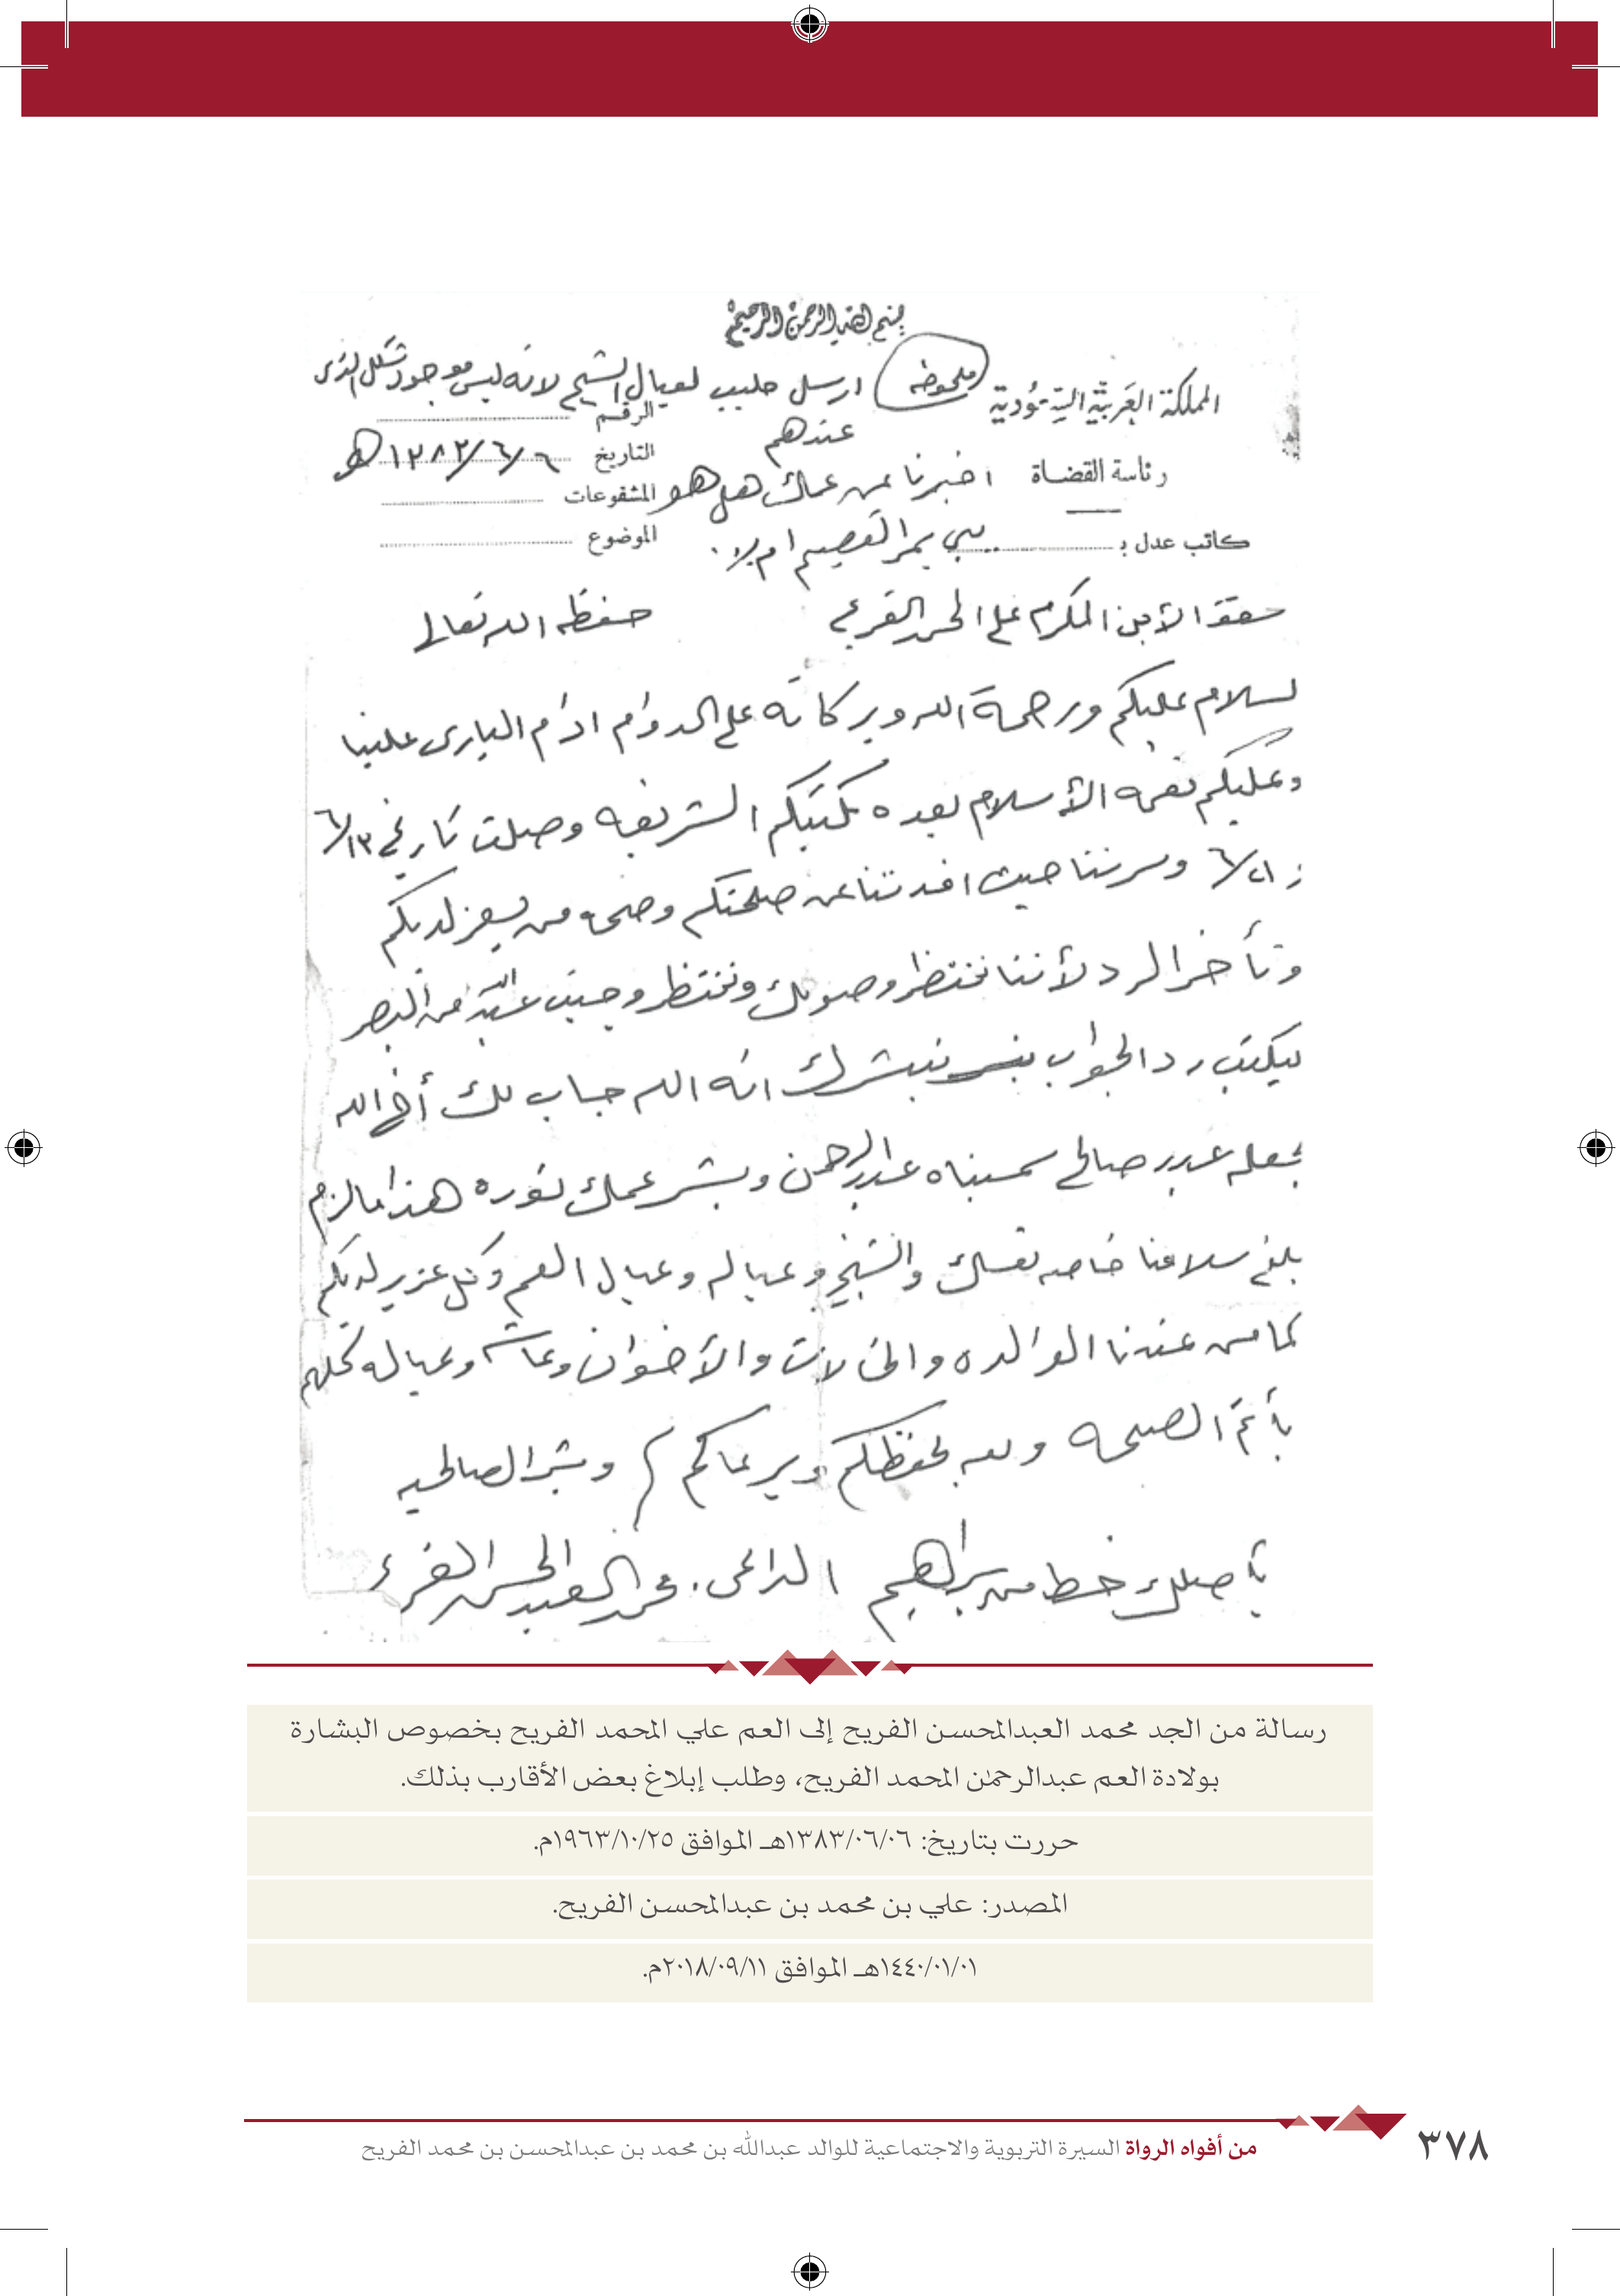 بسم الله الرحمن الرحيم
المملكة العربية السعودية
ملحوظه ارسل حليب لعيال الشيخ لانه ليس موجود شكل الذى
عندهم
الرقم
رئاسة القضاة
التاريخ ٦/٦/١٣٨٣هـ
اخبرنا عن عمك هل هو
المشفوعات
كاتب عدل بـ
يبي يمر القصيم ام لا.
الموضوع
حضرة الأجل المكرم على المحمد الفريح حفظه الله تعالى
لسلام عليكم ورحمة الله وبركاته على الدوام ادام البارى علينا
وعليكم نعمه الأسلام بعده كتبكم الشريفه وصلت تاريخ ٦/١٣
٦/٢١ وسرنا حيث افدتنا عن صحتكم وصحه من يعز لديكم
وتأخر الرد لأننا ننتظر وصولك وننتظر وجينا عبدالله من
ليكتب رد الجواب نبشرك انه الله جاب لك أخ الله
يجعله عبد صالح سميناه عبدالرحمن وبشر عمك نوره هذا مالزم
بلغ سلامنا خاصه نفسك والشيخ وعياله وعيال العم وكل عزيز لديكم
كما من عندنا الوالده والخالات والأخوان وعياله كلهم
بأتم الصحه والله يحفظكم ويرعاكم وبشر الصالحيه
يأصلك خط من براهيم الداعى. محمد العبد المحسن الفريح
رسالة من الجد محمد العبدالمحسن الفريح إلى العم علي المحمد الفريح بخصوص البشارة
بولادة العم عبدالرحمن المحمد الفريح، وطلب إبلاغ بعض الأقارب بذلك.
حررت بتاريخ: ١٣٨٣/٠٦/٠٦هـ الموافق ١٩٦٣/١٠/٢٥م.
المصدر: علي بن محمد بن عبدالمحسن الفريح.
١٤٤٠/٠١/٠١هـ الموافق ٢٠١٨/٠٩/١١م.
من أفواه الرواة السيرة التربوية والاجتماعية للوالد عبدالله بن محمد بن عبدالمحسن بن محمد الفريح
٣٧٨